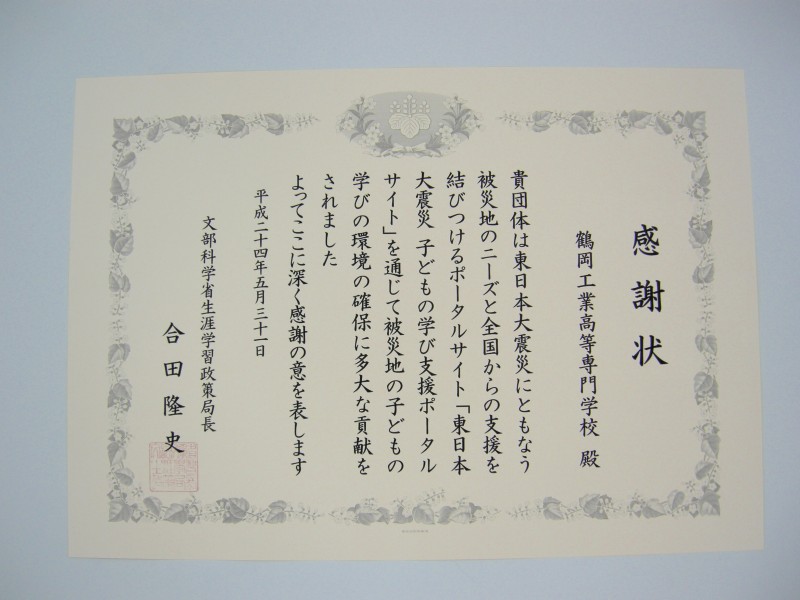 感謝状
鶴岡工業高等専門学校 殿
貴団体は東日本大震災にともなう
被災地のニーズと全国からの支援を
結びつけるポータルサイト「東日本
大震災 子どもの学び支援ポータル
サイト」を通じて被災地の子どもの
学びの環境の確保に多大な貢献を
されました
よってここに深く感謝の意を表します
平成二十四年五月三十一日
文部科学省生涯学習政策局長
合田隆史